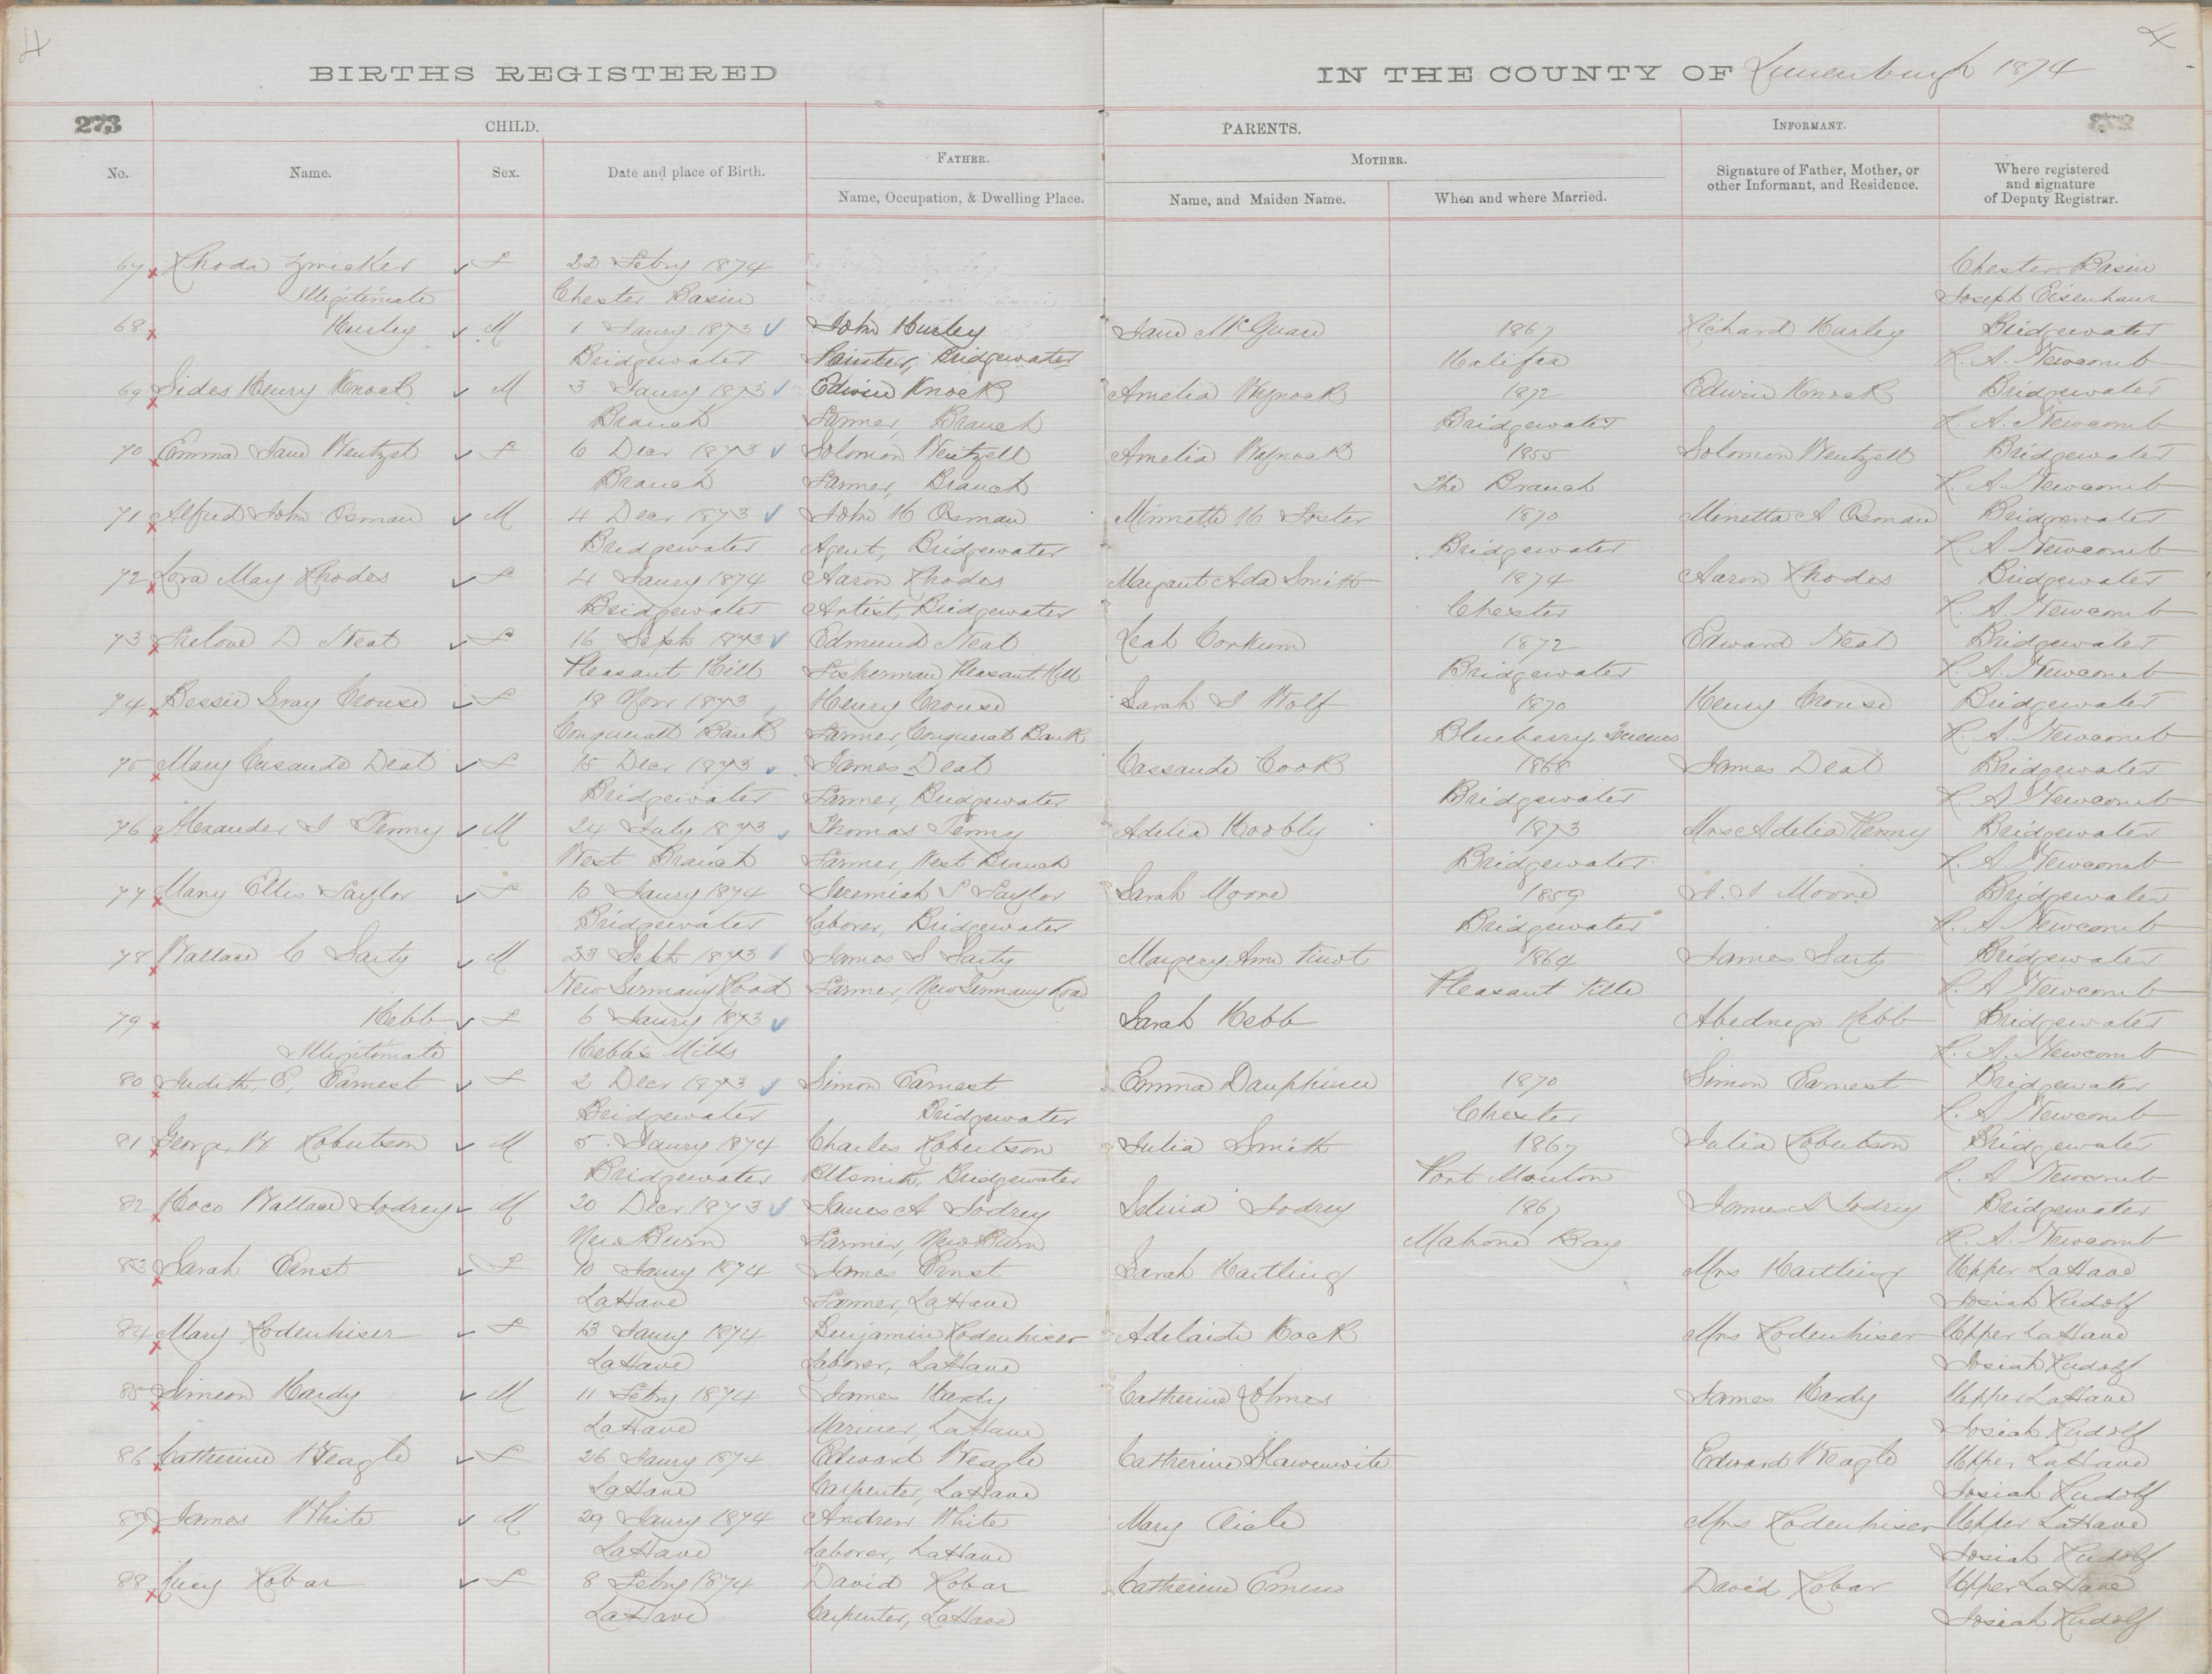 4
BIRTHS REGISTERED IN THE COUNTY OF Lunenburgh 1874
273
CHILD. PARENTS. INFORMANT.
No. Name. Sex. Date and place of Birth. FATHER. Name, Occupation, & Dwelling Place. MOTHER. Name, and Maiden Name. When and where Married. Signature of Father, Mother, or other Informant, and Residence. Where registered and signature of Deputy Registrar.
67 Rhoda Zwicker F 22 Febry 1874 Chester Basin
Illegitimate Chester Basin Joseph Eisenhaur
68 Hurley M 1 Jaury 1873 John Hurley Jane McGuan 1867 Richard Hurley Bridgewater
Bridgewater Painter, Bridgewater Halifax R. A. Newcomb
69 Sides Henry Knock M 3 Jaury 1873 Edwin Knock Amelia Wynock 1872 Edwin Knock Bridgewater
Branch Farmer, Branch Bridgewater R. A. Newcomb
70 Emma Jane Wentzel F 6 Decr 1873 Solomon Wentzell Amelia Wynock 1855 Solomon Wentzell Bridgewater
Branch Farmer, Branch The Branch R. A. Newcomb
71 Alfred John Osman M 4 Decr 1873 John H Osman Minnetta H Foster 1870 Minetta A Osman Bridgewater
Bridgewater Agent, Bridgewater Bridgewater R. A. Newcomb
72 Lora May Rhodes F 4 Jaury 1874 Aaron Rhodes Margaret Ada Smith 1874 Aaron Rhodes Bridgewater
Bridgewater Artist, Bridgewater Chester R. A. Newcomb
73 Frelove D Neat F 16 Septr 1873 Edmund Neat Leah Corkum 1872 Edward Neat Bridgewater
Pleasant Hill Fisherman Pleasant Hill Bridgewater R. A. Newcomb
74 Bessie Gray Crouse F 18 Novr 1873 Henry Crouse Sarah J Wolf 1870 Henry Crouse Bridgewater
Conquerall Bank Farmer, Conquerall Bank Blueberry, Queens R. A. Newcomb
75 Mary Casande Deal F 15 Decr 1873 James Deal Cassande Cook 1868 James Deal Bridgewater
Bridgewater Farmer, Bridgewater Bridgewater R. A. Newcomb
76 Alexander J Penny M 24 July 1873 Thomas Penny Adelia 1873 Mrs Adelia Penny Bridgewater
West Branch Farmer, West Branch Bridgewater R. A. Newcomb
77 Mary Ellis Taylor F 10 Jaury 1874 Jeremiah S Taylor Sarah Moore 1859 J. J Moore Bridgewater
Bridgewater Laborer, Bridgewater Bridgewater R. A. Newcomb
78 Wallace C Sarty M 23 Septr 1873 James S Sarty Margery Ann 1864 James Sarty Bridgewater
New Germany Road Farmer, New Germany Road Pleasant R. A. Newcomb
79 Hebb F 6 Jaury 1873 Sarah Hebb Abednego Hebb Bridgewater
Illegitimate Hebb's Mills R. A. Newcomb
80 Judith E, Earnest F 2 Decr 1873 Simon Earnest Emma Dauphinee 1870 Simon Earnest Bridgewater
Bridgewater Bridgewater Chester R. A. Newcomb
81 George W Robertson M 5 Jaury 1874 Charles Robertson Julia Smith 1867 Julia Robertson Bridgewater
Bridgewater Blksmith, Bridgewater Port Mouton R. A. Newcomb
82 Wallace Jodrey M 20 Decr 1873 James A Jodrey Selina Jodrey 1867 James A Jodrey Bridgewater
New Burn Farmer, New Burn Mahone Bay R. A. Newcomb
83 Sarah Ernst F 10 Jaury 1874 James Ernst Sarah Hartling Mrs Hartling Upper LaHave
LaHave Farmer, LaHave Josiah Rudolf
84 Mary Rodenhiser F 13 Jaury 1874 Benjamin Rodenhiser Adelaide Mrs Rodenhiser Upper LaHave
LaHave Laborer, LaHave Josiah Rudolf
85 Simeon Hardy M 11 Febry 1874 James Hardy Catherine James Hardy Upper LaHave
LaHave Mariner, LaHave Josiah Rudolf
86 Catherine Weagle F 26 Jaury 1874 Edward Weagle Catherine Slawenwite Edward Weagle Upper LaHave
LaHave Carpenter, LaHave Josiah Rudolf
87 James White M 29 Jaury 1874 Andrew White Mary Mrs Rodenhiser Upper LaHave
LaHave Laborer, LaHave Josiah Rudolf
88 Lucy Robar F 8 Febry 1874 David Robar Catherine David Robar Upper LaHave
LaHave Carpenter, LaHave Josiah Rudolf